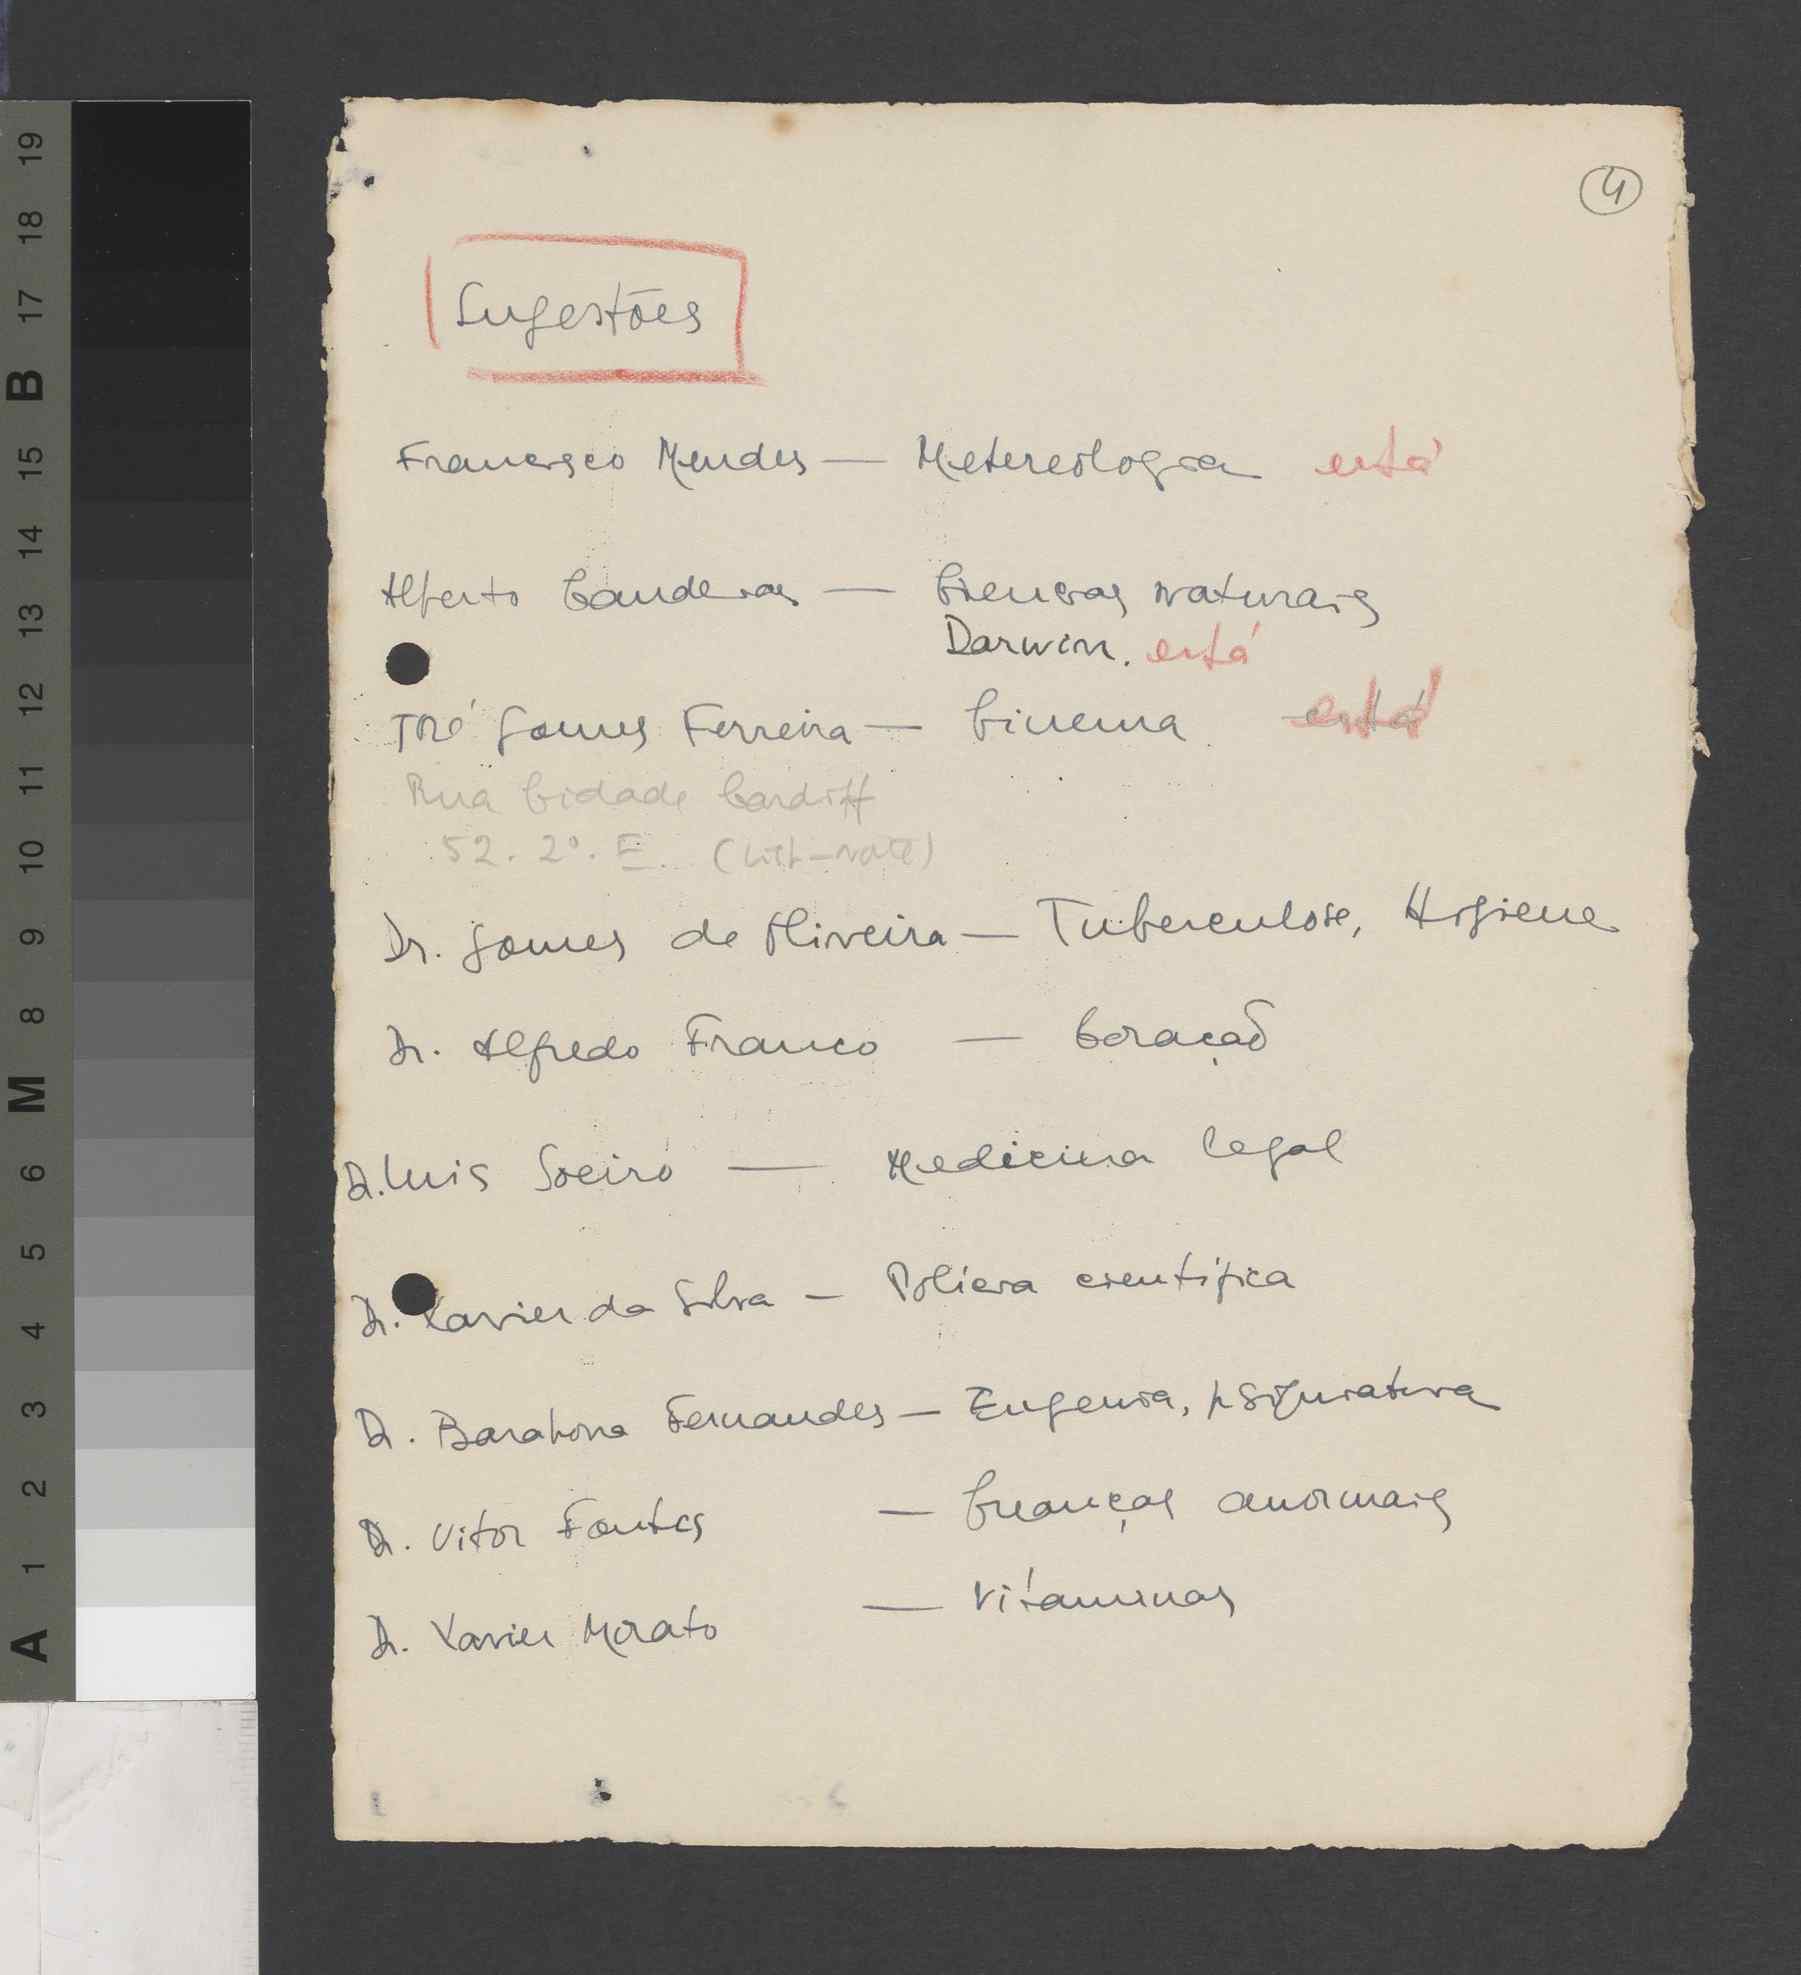 4
Sugestões
Francisco Mendes — Metereologia está
Alberto Candeias — Ciencias naturais
Darwin. está
José Gomes Ferreira — Cinema está
Rua Cidade Cardiff
52. 2º. E.
Dr. Gomes de Oliveira — Tuberculose, Higiene
Dr. Alfredo Franco — Coração
Dr. Luis Soeiro — Medicina legal
Dr. Xavier da Silva — Polícia cientifica
Dr. Barahona Fernandes — Eugenia, psiquiatria
Dr. Vitor Fontes — Crianças anormais
Dr. Xavier Morato — Vitaminas
19
18
17
B
15
14
13
12
11
10
9
8
M
6
5
4
3
2
1
A